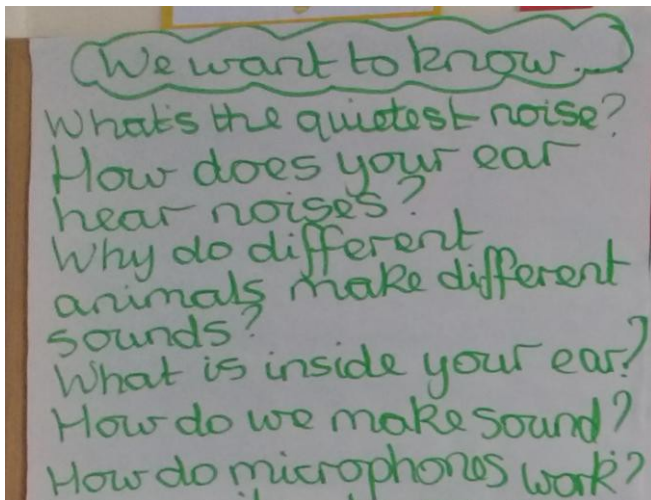 We want to know...
What's the quietest noise?
How does your ear
hear noises?
Why do different
animals make different
sounds?
What is inside your ear?
How do we make sound?
How do microphones work?